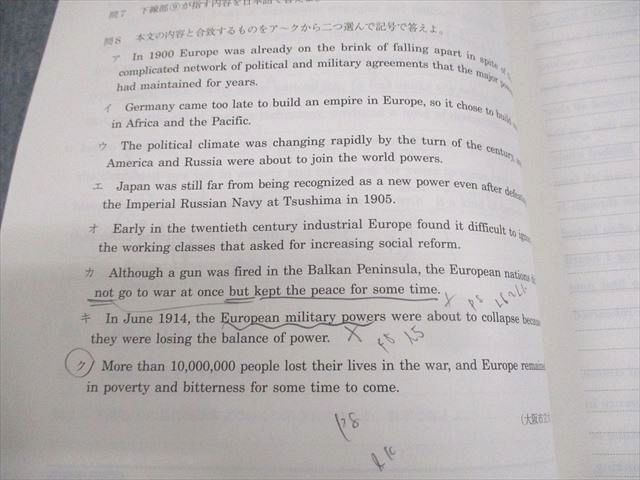 問7 下線部⑨が指す内容を日本語で答えな
問8 本文の内容と合致するものをア～クから二つ選んで記号で答えよ。
ア In 1900 Europe was already on the brink of falling apart in spite of
complicated network of political and military agreements that the major
had maintained for years.
イ Germany came too late to build an empire in Europe, so it chose to build
in Africa and the Pacific.
ウ The political climate was changing rapidly by the turn of the century,
America and Russia were about to join the world powers.
エ Japan was still far from being recognized as a new power even after
the Imperial Russian Navy at Tsushima in 1905.
オ Early in the twentieth century industrial Europe found it difficult to
the working classes that asked for increasing social reform.
カ Although a gun was fired in the Balkan Peninsula, the European nations
not go to war at once but kept the peace for some time.
キ In June 1914, the European military powers were about to collapse
they were losing the balance of power.
ク More than 10,000,000 people lost their lives in the war, and Europe
in poverty and bitterness for some time to come.
p8